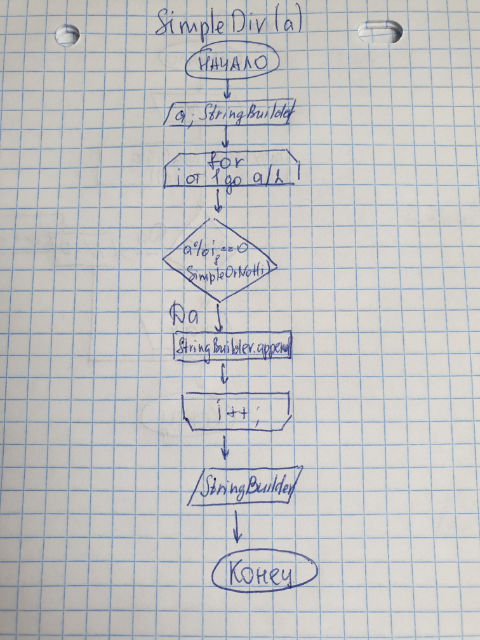 SimpleDiv(a)
НАЧАЛО
a; StringBuilder
for
i от 1 go a/2
a%i==0
&
SimpleOrNot(i)
Da
StringBuilder.append
i++;
StringBuilder
Конец